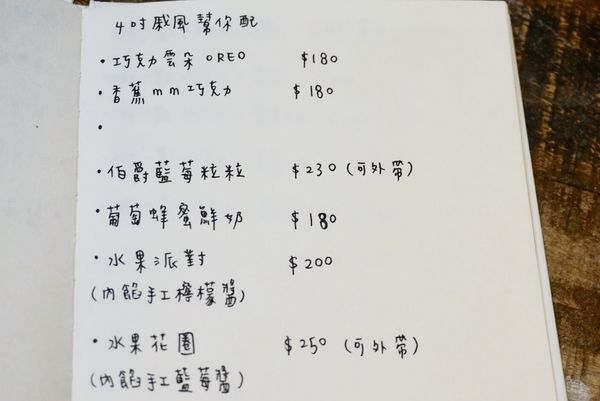 4吋戚風幫你配
・巧克力雲朵OREO $180
・香蕉mm巧克力 $180
・
・伯爵藍莓粒粒 $230(可外帶)
・葡萄蜂蜜鮮奶 $180
・水果派對 $200
(內餡手工檸檬醬)
・水果花園 $250 (可外帶)
(內餡手工藍莓醬)